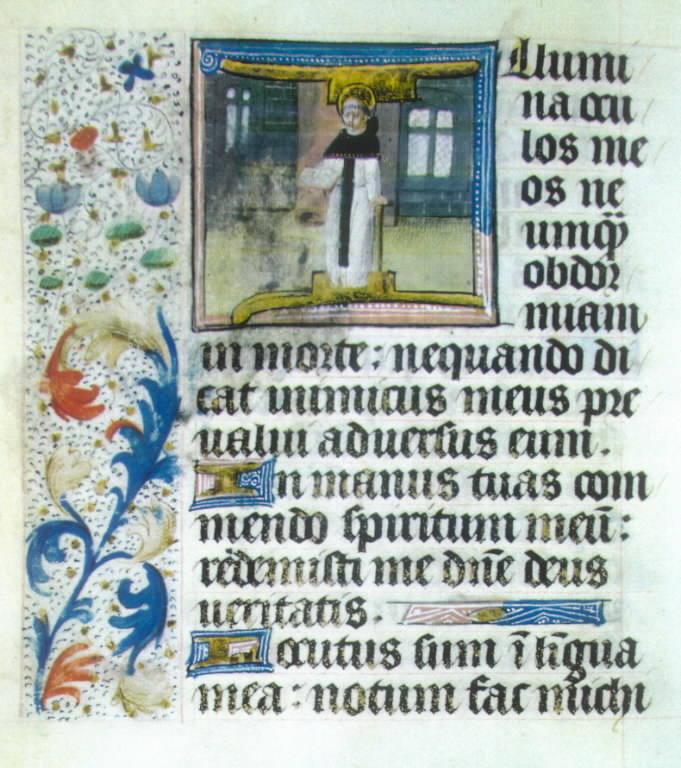 Illumi
na ocu
los me
os ne
umq̄
obdor
miam
in morte : nequando di
cat inimicus meus pre
ualui aduersus eum .
In manus tuas com
mendo spiritum meū :
redemisti me dn̄e deus
ueritatis .
Locutus sum ī līgua
mea : notum fac michi